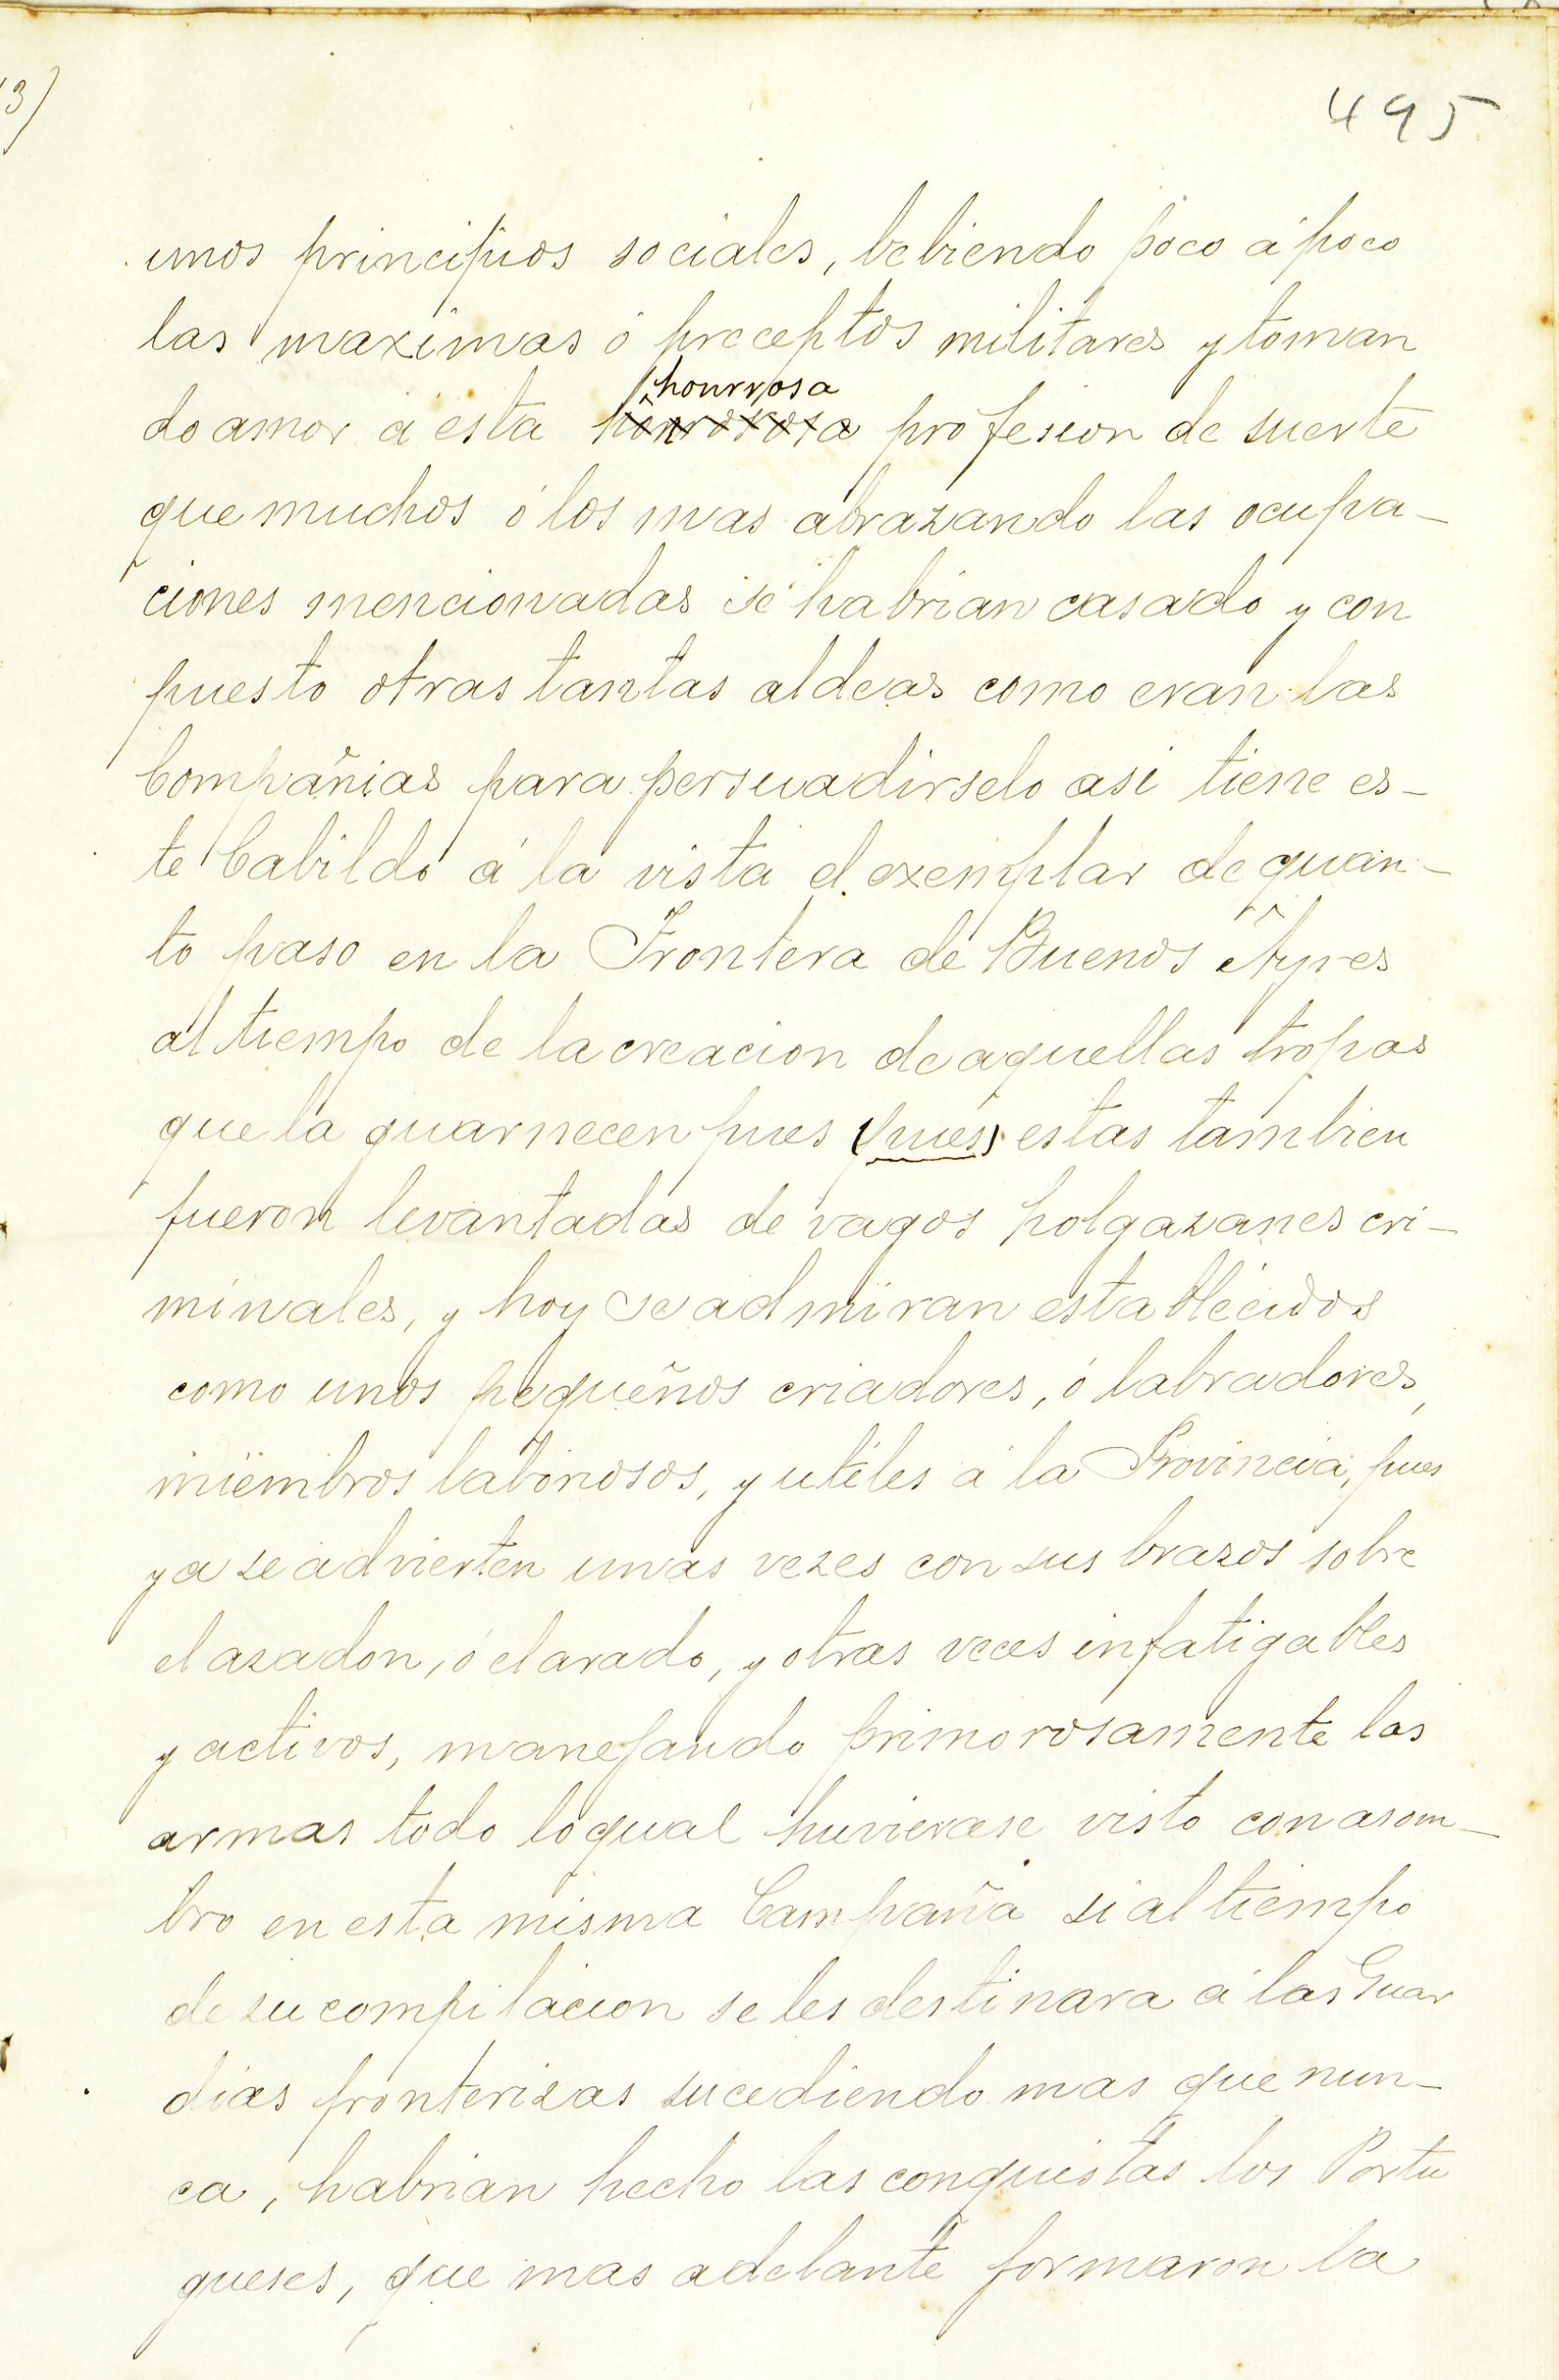 3)
495
unos principios sociales, bebiendo poco á poco
las maximas ó preceptos militares y toman
honrrosa
do amor á esta honrosa profesion de suerte
que muchos ó los mas abrazando las ocupa-
ciones mencionadas se habrian casado y con
puesto otras tantas aldeas como eran las
Compañias para persuadirselo asi tiene es-
te Cabildo á la vista el exemplar de quan-
to paso en la Frontera de Buenos Ayres
al tiempo de la creacion de aquellas tropas
que la guarnecen pues (pues) estas tambien
fueron levantadas de vagos holgazanes cri-
minales, y hoy se admiran establecidos
como unos pequeños criadores, ó labradores,
miembros laboriosos, y utiles á la Provincia, pues
ya se advierten unas vezes con sus brazos sobre
el azadon, ó el arado, y otras veces infatigables
y activos, manejando primorosamente las
armas todo lo qual huvierase visto con asom-
bro en esta misma Campaña si al tiempo
de su compilacion se les destinara á las Guar
dias fronterizas sucediendo mas que nun-
ca, habrian hecho las conquistas los Portu
gueses, que mas adelante formaron la